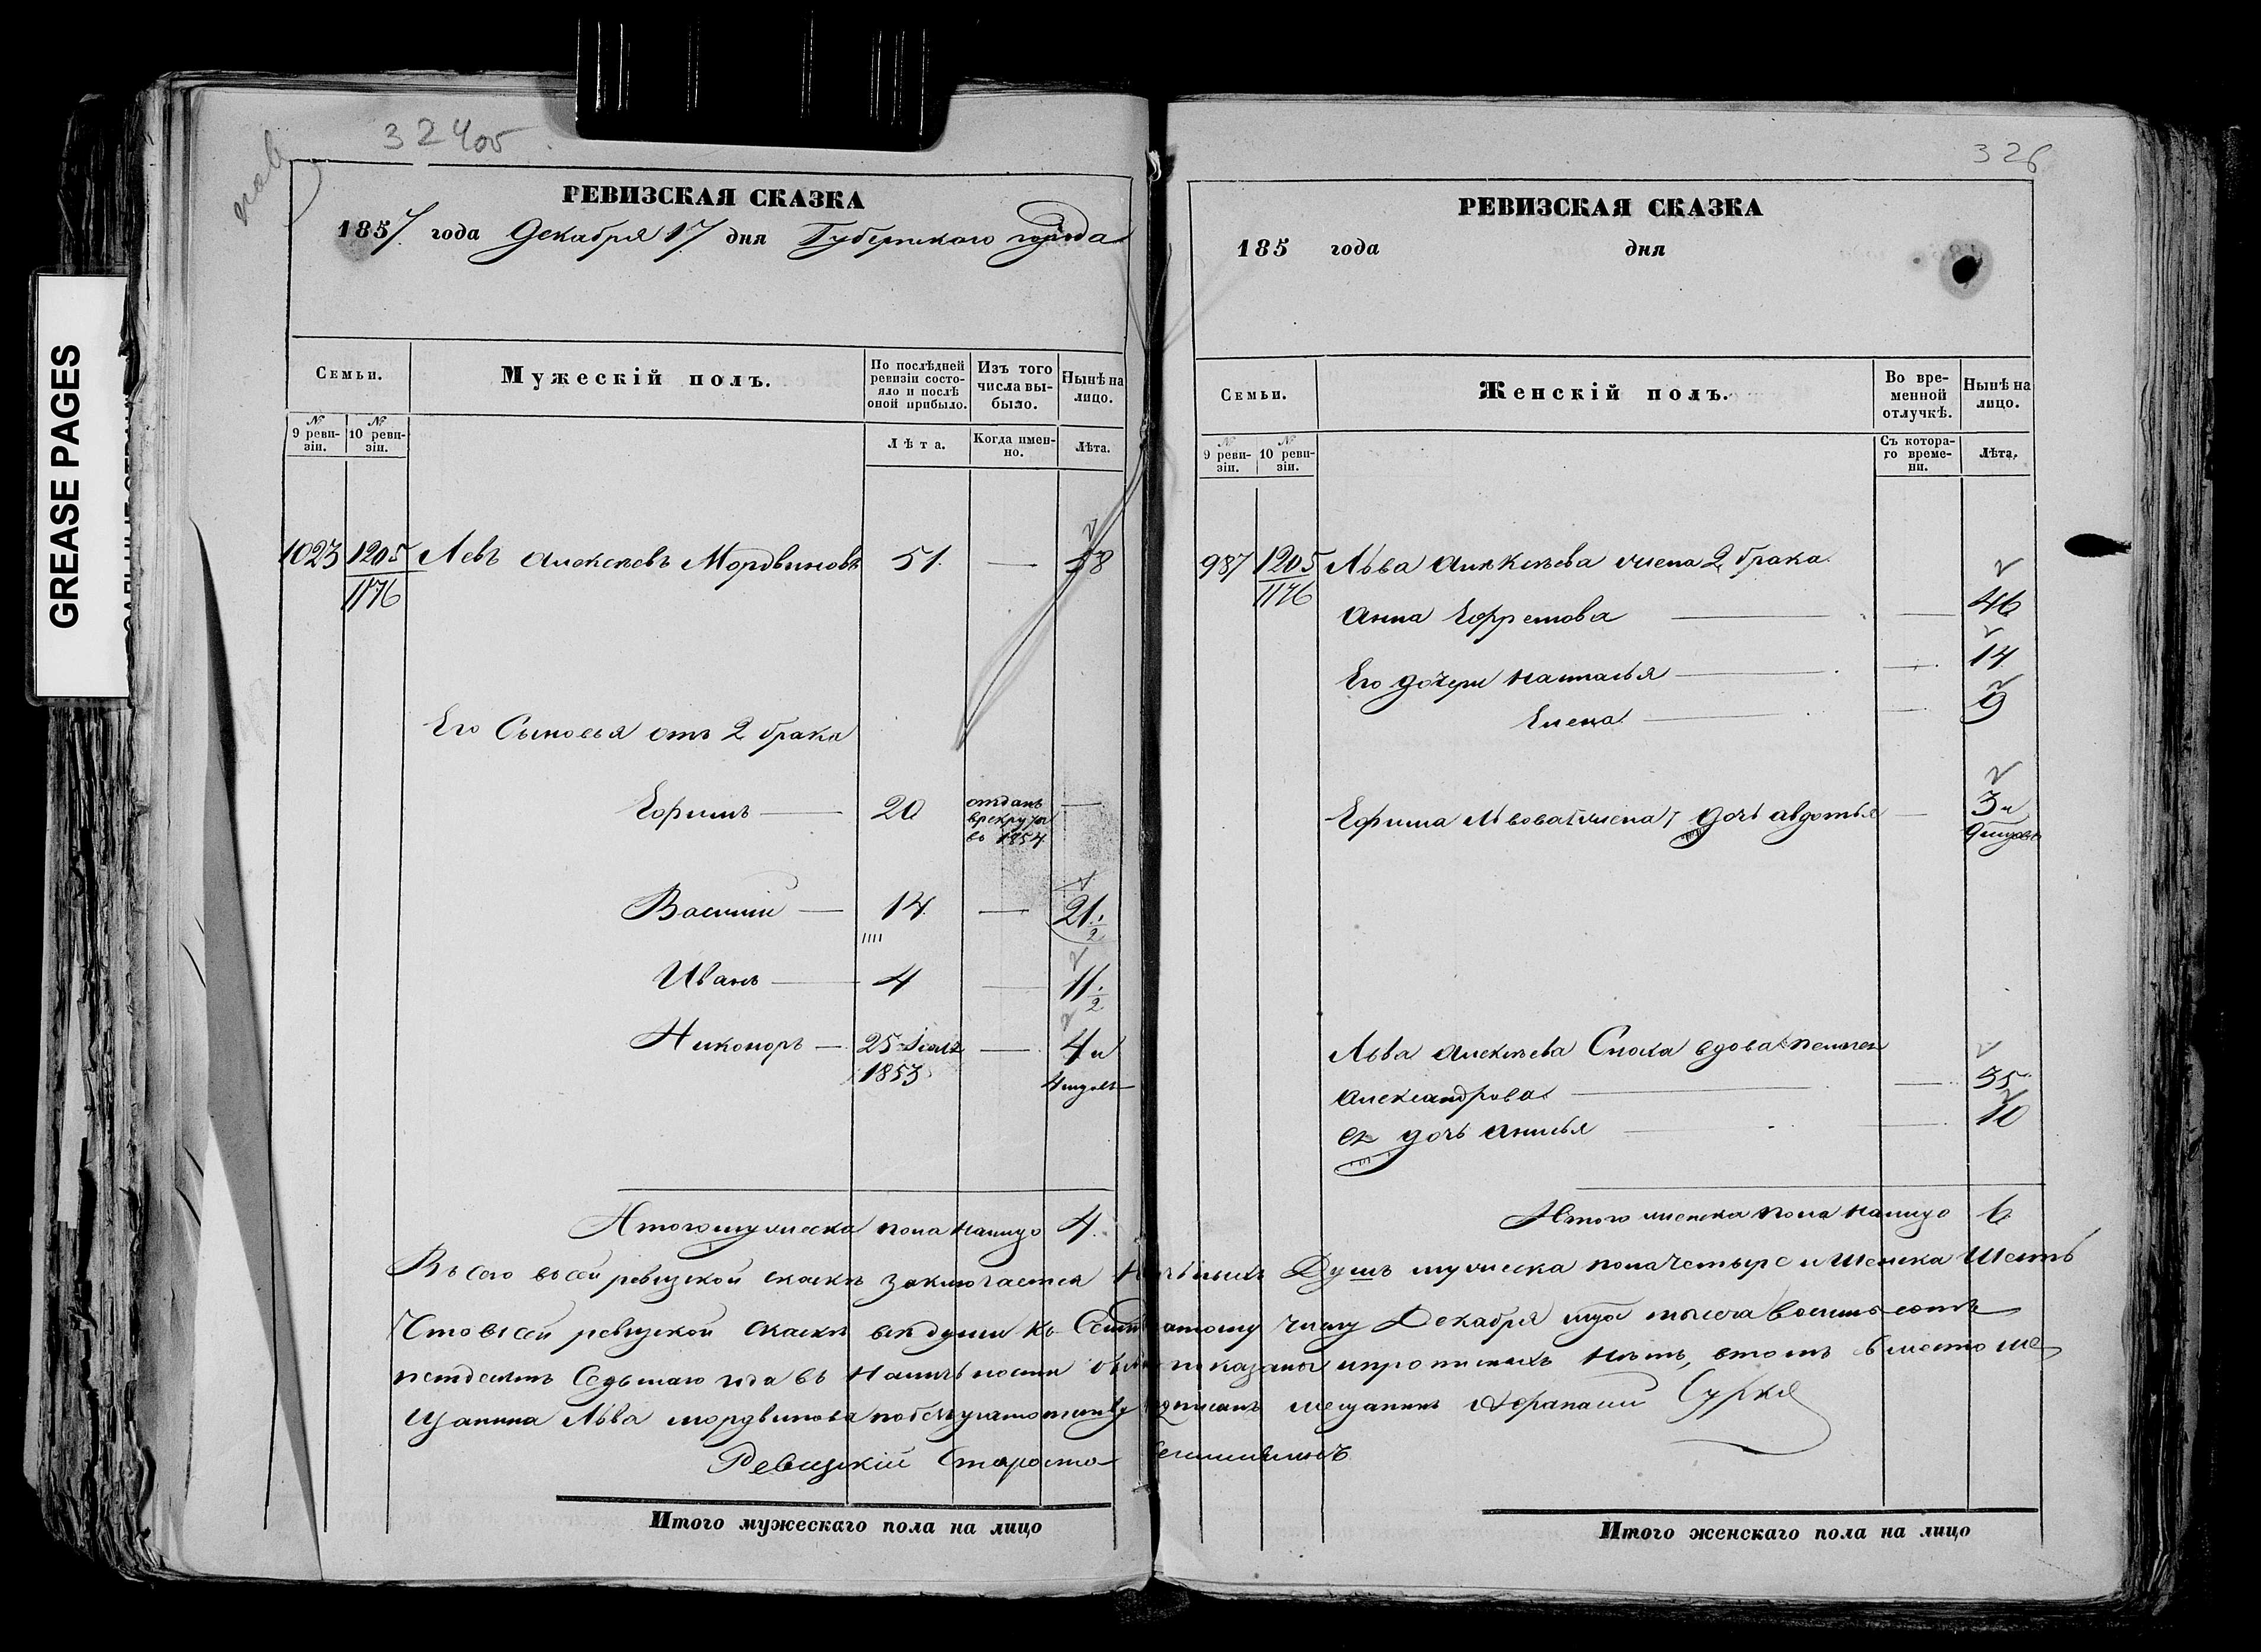 324об
РЕВИЗСКАЯ СКАЗКА
1857 года Декабря 17 дня Губернского города
Семьи.
Мужескій полъ.
По послѣдней ревизіи состояло и послѣ оной прибыло.
Изъ того числа выбыло.
Нынѣ на лицо.
№ 9 ревизіи.
№ 10 ревизіи.
Лѣта.
Когда именно.
Лѣта.
1023 1205 Левъ Алексѣевъ Мордвиновъ 51. — 58
1176
Его Сыновья отъ 2 брака
Ефимъ — 20 отданъ —
в рекруты
во 1854
Василий — 14 — 21 1/2
Иванъ — 4 — 11 1/2
Никоноръ — 25 — 4 и
1853
Итого мужеска пола налицо 4.
РЕВИЗСКАЯ СКАЗКА
326
185 года дня
Семьи.
Женскій полъ.
Во временной отлучкѣ.
Нынѣ на лицо.
№ 9 ревизіи.
№ 10 ревизіи.
Съ котораго времени.
Лѣта.
987 1205 Льва Алексѣева жена 2 брака
1176 Анна Ефремова — 46
Его дочери Наталья — 14
Елена — 9
Ефима Львова жена, дочь Авдотья — 3 и
Льва Алексѣева Сноха вдова
Александрова — 35
ея дочь Анисья — 10
Итого женска пола налицо 6
Всего в сей ревизской сказкѣ заключается Наличныхъ Душъ мужеска пола четыре и Женска Шесть
Что в сей ревизской сказкѣ всѣ души къ Семнадцатому числу Декабря тысяча восемь сотъ
Седьмаго года въ Наличьности показаны и прописныхъ нѣтъ, в томъ вместо ме
щанина Льва Мордвинова мещанинъ Афанасий
Ревизский Староста
Итого мужескаго пола на лицо
Итого женскаго пола на лицо
GREASE PAGES